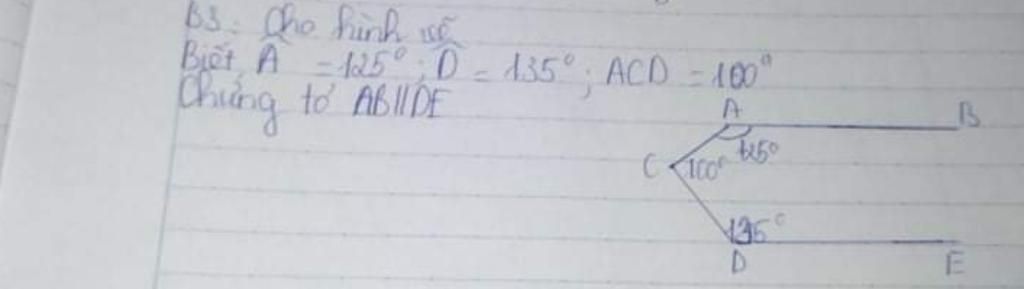 B3: Cho hình vẽ
Biết Â = 125°; D̂ = 135°; ACD = 100°
Chứng tỏ AB//DE
A B
125°
C 100°
135°
D E